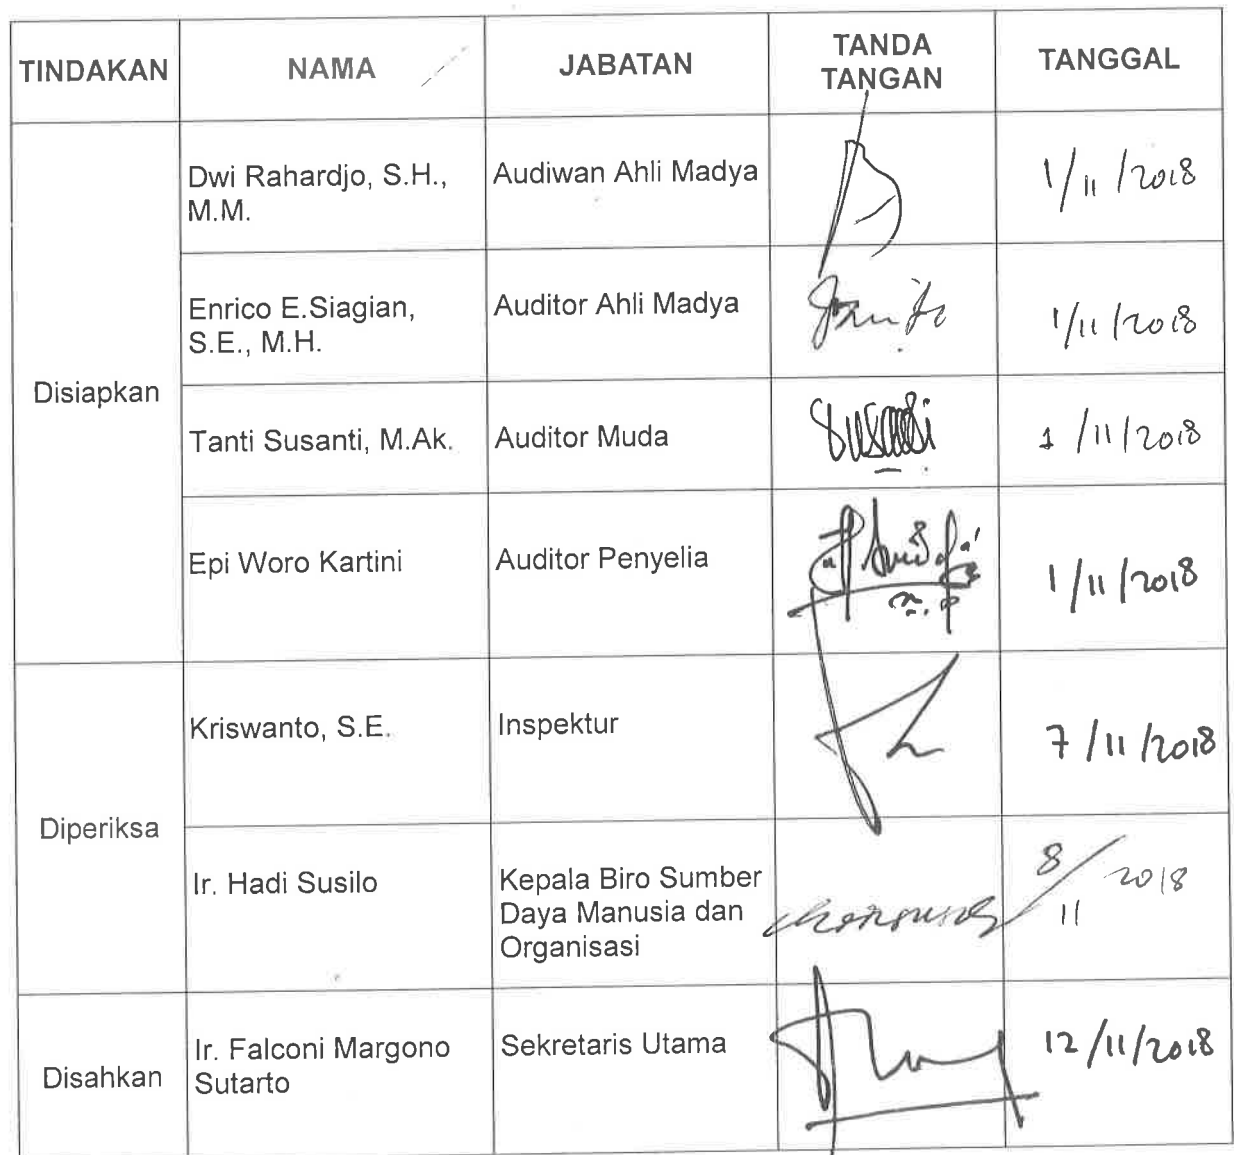 TINDAKAN NAMA JABATAN TANDA TANGAN TANGGAL
Disiapkan
Dwi Rahardjo, S.H.,
M.M.
Audiwan Ahli Madya
1/11/2018
Enrico E.Siagian,
S.E., M.H.
Auditor Ahli Madya
1/11/2018
Tanti Susanti, M.Ak.
Auditor Muda
1/11/2018
Epi Woro Kartini
Auditor Penyelia
1/11/2018
Diperiksa
Kriswanto, S.E.
Inspektur
7/11/2018
Ir. Hadi Susilo
Kepala Biro Sumber
Daya Manusia dan
Organisasi
8/11 2018
Disahkan
Ir. Falconi Margono
Sutarto
Sekretaris Utama
12/11/2018